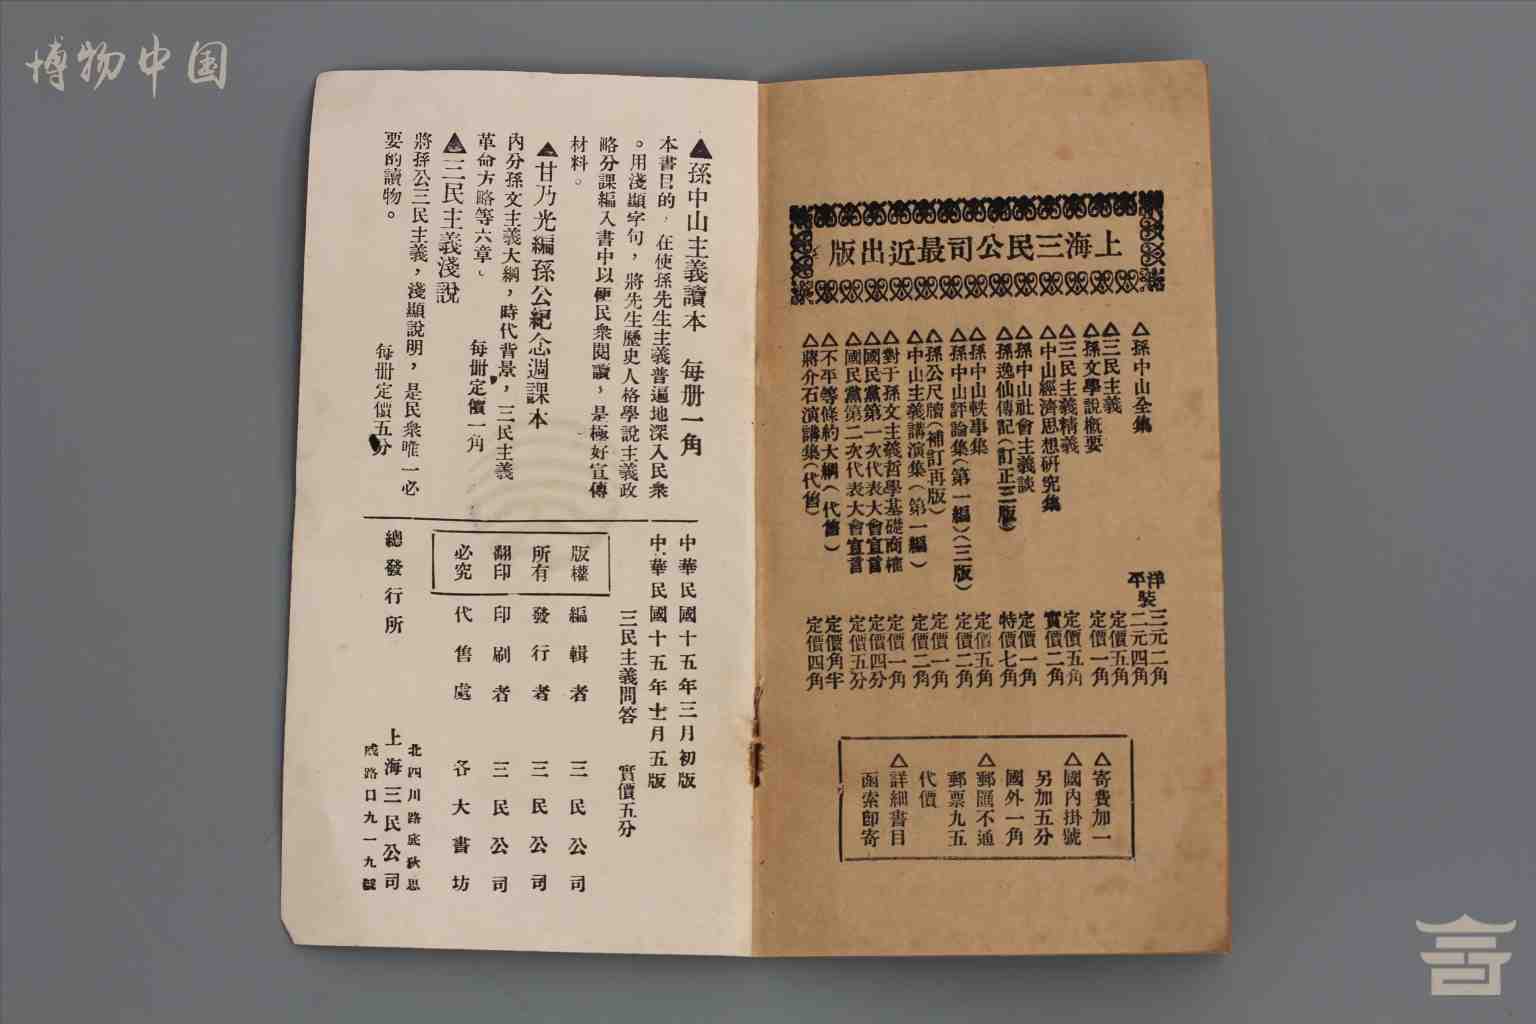 博物中国
上海三民公司最近出版
△孫中山全集 洋裝三元二角 平裝二元四角
△三民主義 定價五角
△孫文學說概要 定價一角
△三民主義精義 定價五角
△中山經濟思想研究集 實價二角
△孫中山社會主義談 定價一角
△孫逸仙傳記(訂正三版) 特價七角
△孫中山軼事集 定價五角
△孫中山評論集(第一編)(三版) 定價二角
△孫公尺牘(補訂再版) 定價一角
△中山主義講演集(第一編) 定價二角
△對于孫文主義哲學基礎商榷 定價一角
△國民黨第一次代表大會宣言 定價四分
△國民黨第二次代表大會宣言 定價五分
△不平等條約大綱(代售) 定價角半
△蔣介石演講集(代售) 定價四角
△寄費加一
△國內掛號
另加五分
國外一角
△郵匯不通
郵票九五
代價
△詳細書目
函索卽寄
▲孫中山主義讀本 每册一角
本書目的,在使孫先生主義普遍地深入民衆
。用淺顯字句,將先生歷史人格學說主義政
略分課編入書中以便民衆閱讀,是極好宣傳
材料。
▲甘乃光編孫公紀念週課本
內分孫文主義大綱,時代背景,三民主義
革命方略等六章。 每册定價一角
▲三民主義淺說
將孫公三民主義,淺顯說明,是民衆唯一必
要的讀物。 每册定價五分
中華民國十五年三月初版
中華民國十五年十二月五版
三民主義問答 實價五分
版權
所有
翻印
必究
編輯者 三民公司
發行者 三民公司
印刷者 三民公司
代售處 各大書坊
總發行所 上海三民公司
北四川路底狄思
威路口九一九號